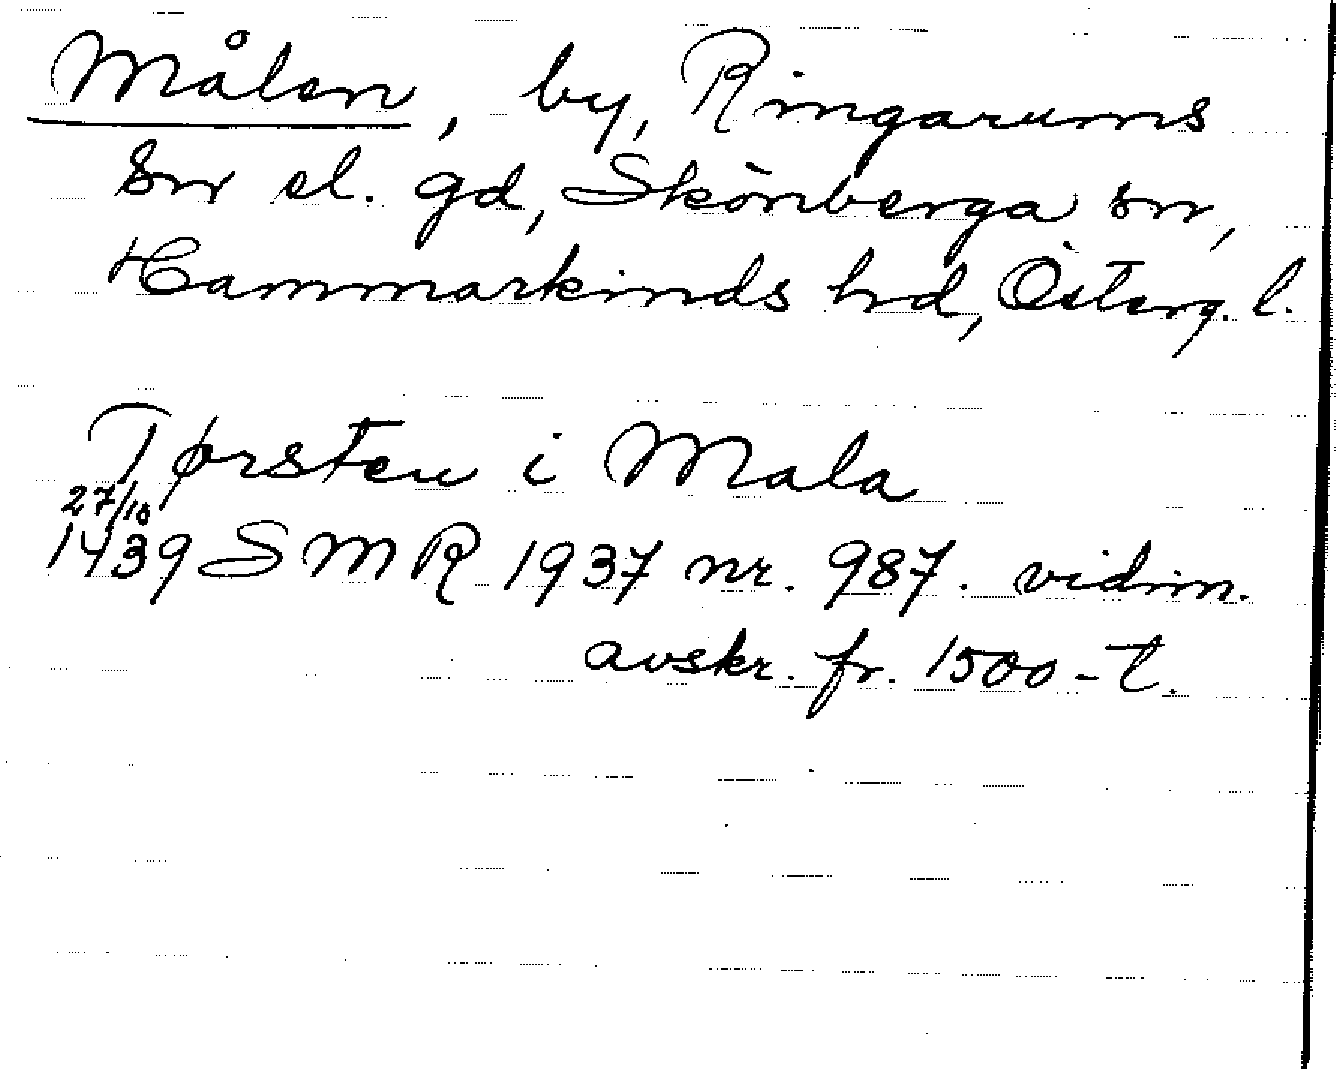 Målen, by, Ringarums
sn el. gd, Skönberga sn,
Hammarkinds hd, Österg. l.
Tørsten i Mala
27/10
1439 SMR 1937 nr. 987. vidim.
avskr. fr. 1500-t.